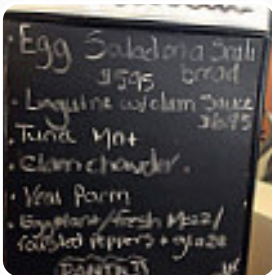 · Egg Salad on a Scali
$5.95 bread
· Linguine w/clam Sauce
$6.95
· Tuna Melt
· Clam chowder.
· Veal Parm
· Eggplant/fresh Mozz/
roasted peppers + glaze